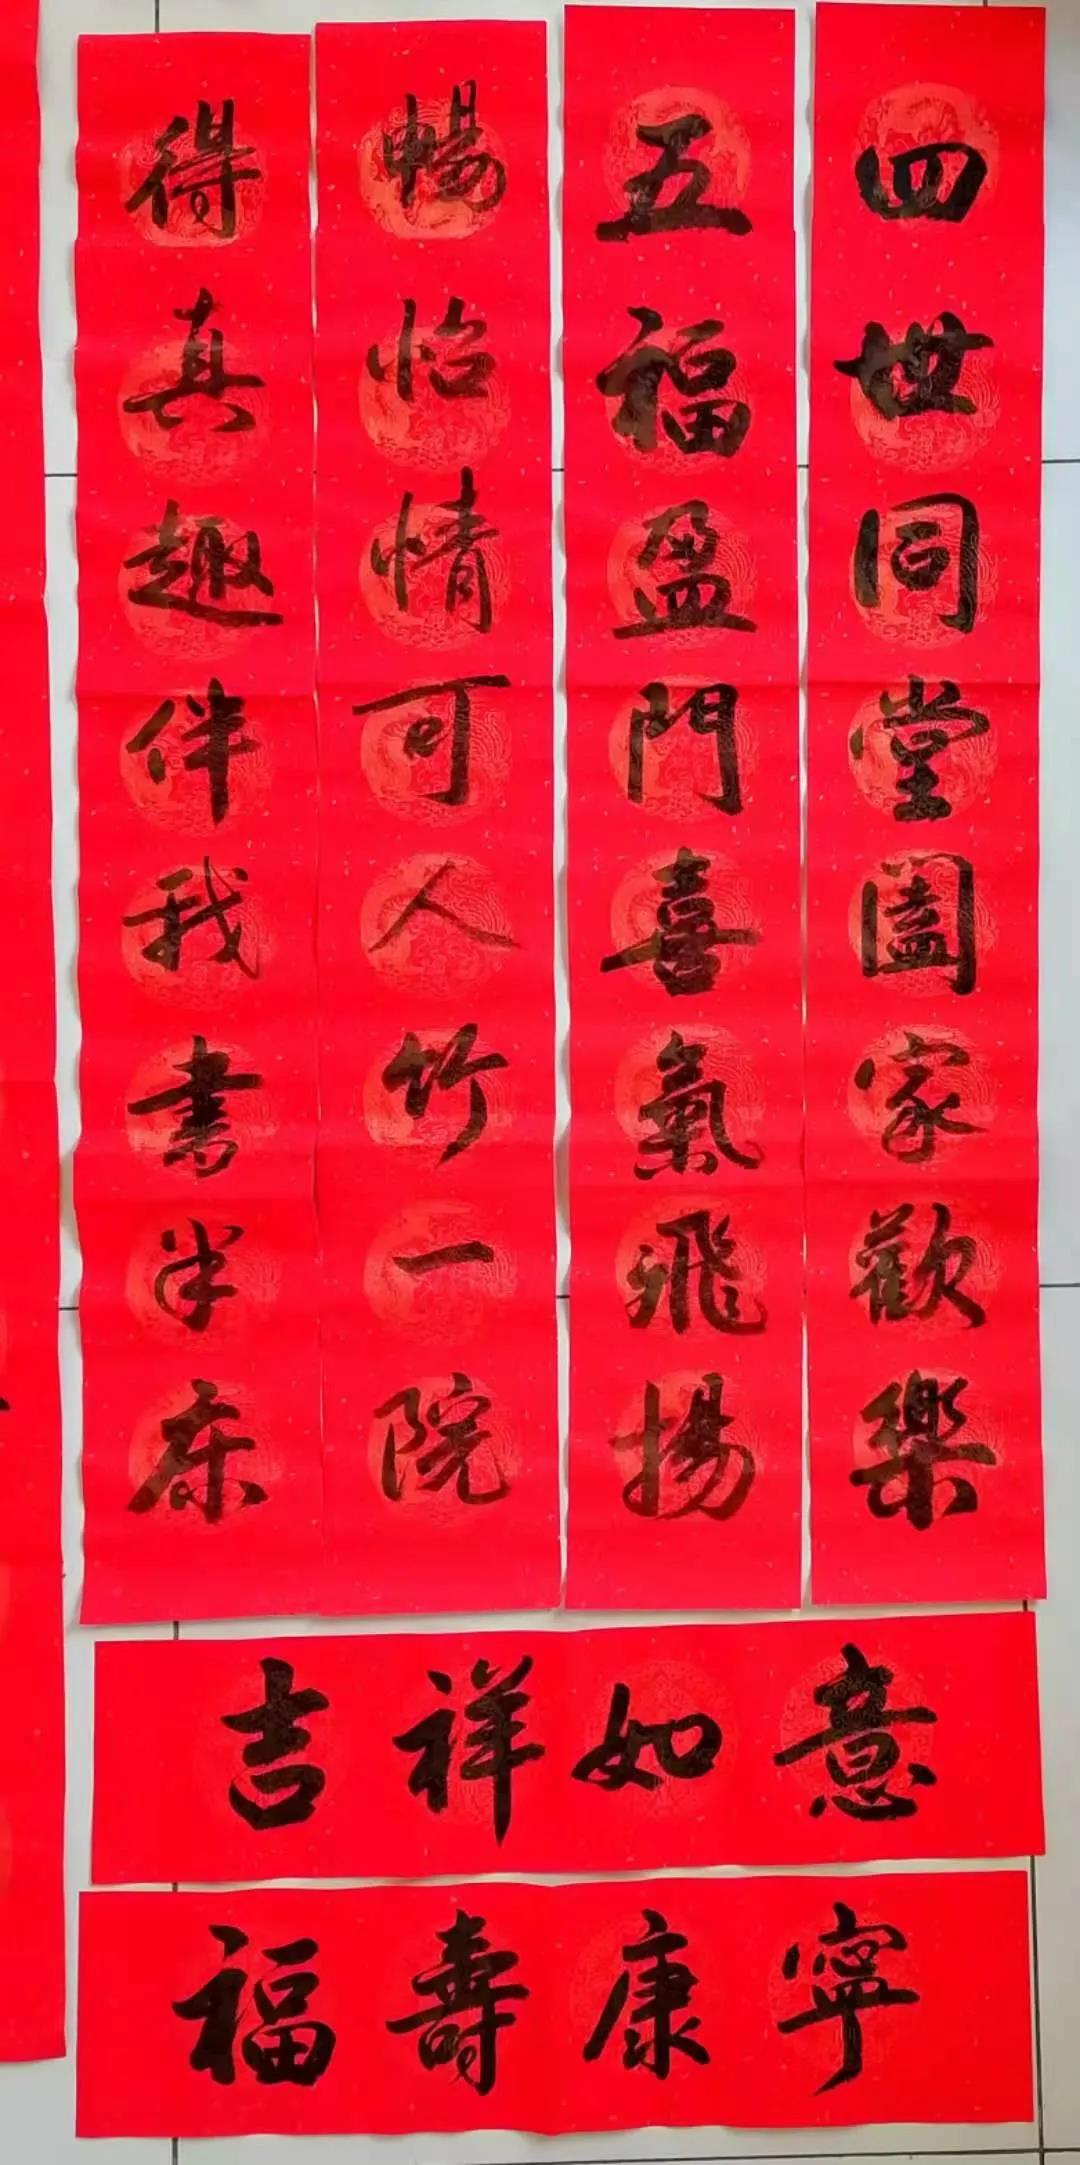 四世同堂闔家歡樂
五福盈門喜氣飛揚
暢怡情可人竹一院
得真趣伴我書半床
吉祥如意
福壽康寧